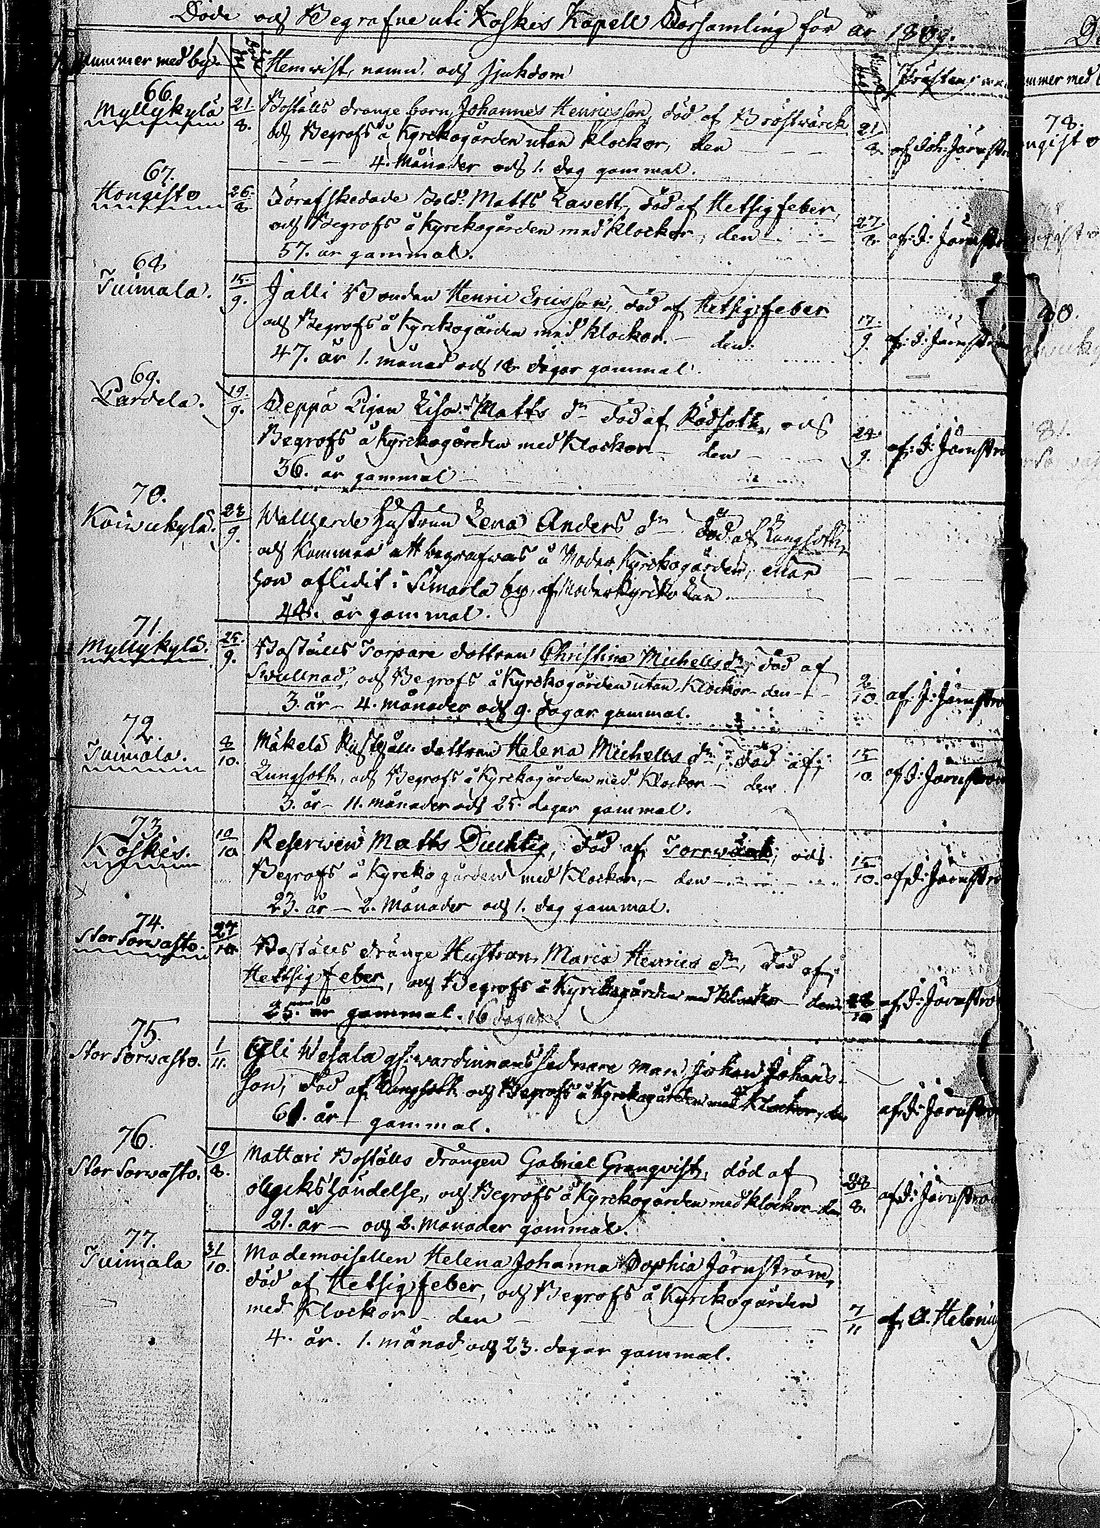 Döde och Begrafne uti Koskis Kapell Församling för år 1809.
Nummer med by. Hemvist, namn, och sjukdom
66. Myllykylä 21/8. Boställs dränge barn Johannes Henricsson, död af Bröstvärck
och Begrofs å Kyrckogården utan klockor, den 21/8. af Joh: Järnströ
4. Månader och 1. dag gammal.
67. Hongisto 26/8 Förafskedade Sold: Matts Lavett, död af Hetsig feber,
och Begrofs å Kyrckogården med Klockor, den 27/8. af J: Järnströ
57. år gammal.
68. Tuimala. 15/9. Jalli Bonden Henric Ericsson, död af Hetsig feber
och Begrofs å Kyrckogården med klockor. den 17/9. af J: Järnströ
47. år 1. månad och 18 dagar gammal.
69. Pardela. 19/9. Seppä Pigan Lisa Matts dr död af Rödsoth, och
Begrofs å Kyrckogården med Klockor den 24/9. af J: Järnströ
36. år gammal
70. Koivukylä. 23/9. Wallherde Hustrun Lena Anders dr död af Lungsoth,
och Kommer att begrafvas å Moder Kyrckogården, emedan
hon aflidit i Simarla by, af Moderkyrko
44. år gammal.
71. Myllykylä. 25/9. Boställs Torpare dottren Christina Michels dr, död af
Swullnad, och Begrofs å Kyrckogården utan Klockor den 2/10. af J: Järnströ
3. år 4. månader och 9. dagar gammal.
72. Tuimala. 8/10. Mäkelä Rusthåll. dottren Helena Michells dr, död af
Lungsoth, och Begrofs å Kyrckogården med Klockor den 15/10. af J: Järnström
3. år 11. månader och 25. dagar gammal.
73. Koskis. 10/10 Reserven Matts Duchtig, död af Torrvärk, och
Begrofs å Kyrckogården med Klockor, den 15/10. af J: Järnströ
23. år 2. Månader och 1. dag gammal.
74. Stor Sorvasto. 27/10 Boställs dränge Hustrun Maria Henrics dr, död af
Hettsig feber, och Begrofs å Kyrckogården med klockor den 28/10 af J: Järnströ
25. år gammal. 16 dagar
75. Stor Sorvasto. 1/11. Ylli Wesala gl: värdinnans sednare man Johan Johans-
son, död af Lungsoth och Begrofs å Kyrckogården med Klockor, den af J: Järnströ
61. år gammal.
76. Stor Sorvasto. 19/8. Mattari Boställs drängen Gabriel Granqvist, död af
olyckshändelse, och Begrofs å Kyrckogården med klockor den 28/8. af J: Järnströ
21. år och 2. månader gammal.
77. Tuimala 31/10. Mademoisellen Helena Johanna Sophia Järnström,
död af Hetsig feber, och Begrofs å Kyrckogården
med Klockor den 7/11 af A. Heleniu
4. år. 1. månad och 23. dagar gammal.
78.
80.
81.